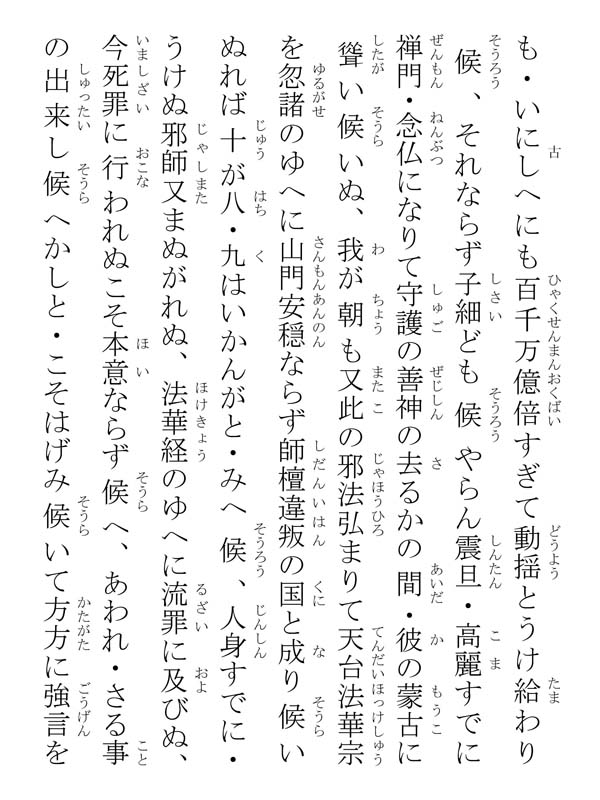 も・いにしへにも百千万億倍すぎて動揺とうけ給わり
候、それならず子細ども候やらん震旦・高麗すでに
禅門・念仏になりて守護の善神の去るかの間・彼の蒙古に
聳い候いぬ、我が朝も又此の邪法弘まりて天台法華宗
を忽諸のゆへに山門安穏ならず師檀違叛の国と成り候い
ぬれば十が八・九はいかんがと・みへ候、人身すでに・
うけぬ邪師又まぬがれぬ、法華経のゆへに流罪に及びぬ、
今死罪に行われぬこそ本意ならず候へ、あわれ・さる事
の出来し候へかしと・こそはげみ候いて方方に強言を